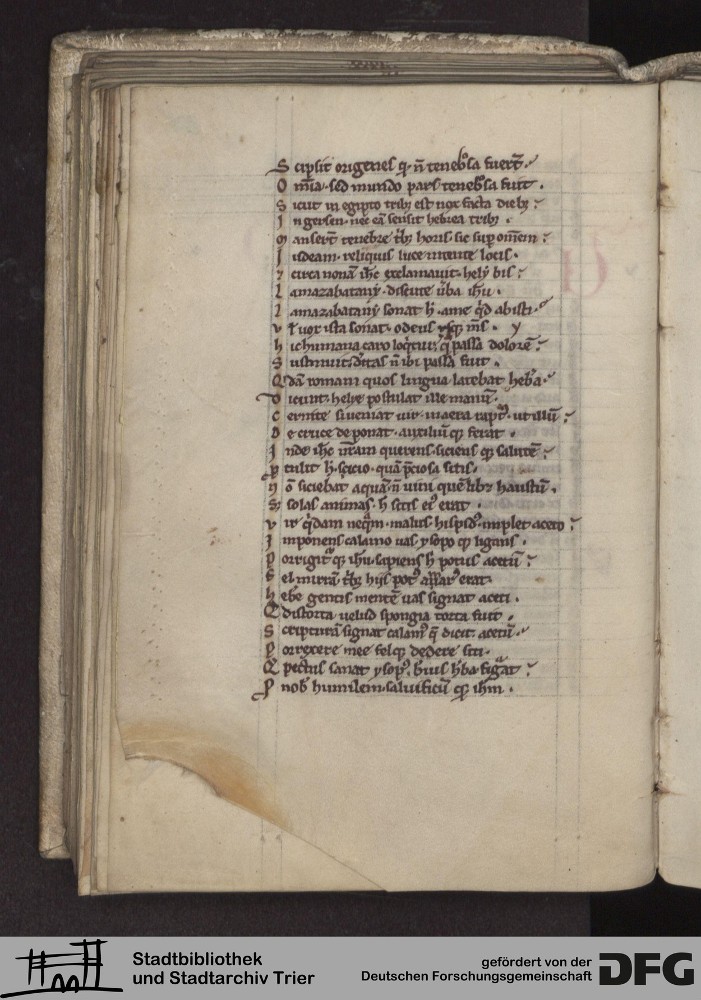 S cripsit origenes q ñ tenebᵒsa fuerᵗ
O mĩa sed mundo pars tenebᵒsa fuit .
S icut in egipto tribȝ est nox facta diebȝ
I n gersen nec eã sensit hebrea tribȝ .
M anserᵗ tenebre tⁱbȝ horis sic suꝑ omẽm
I udeam reliquis luce nitente locis .
⁊ circa nonã ihc exclamauit hely bis
L amazabatany discute uba ihu .
L amazabatany sonat h ame qd abisti
v ox ista sonat o deus usqȝ ms .
h ic humana caro loqitur q passa dolorẽ
S ustinuit dⁱtas ñ ibi passa fuit .
Q dã romani quos lingua latebat hebᵃ
D icunt helye postulat ille manũ .
C ernite si ueniat uir
D e cruce deponat auxiliũqȝ ferat .
I nde ihc nram querens siciens qȝ salutẽ
P tulit h scicio quã pciosa sitis .
N õ siciebat aquã ñ uini quẽ libȝ haustũ .
S solas animas h sitis eiᵒ erat .
v ir qdam neqm malus implet aceto
I mponens calamo uas ysopo qȝ ligans .
P orrigitᵘqȝ ihu sapiens h potus acetũ
F el mirrã tⁱbȝ hijs potᵒ erat
h ebe gentis mentẽ uas signat aceti .
Q distorta uelud spongia torta fuit .
S cripturã signat calamᵒ q dicit acetũ
P orrexere mee felqȝ dedere siti .
Q pectus sanat ysopᵒ hba figᵃt
P nob humilem saluificũ qȝ ihm .
Stadtbibliothek
und Stadtarchiv Trier
gefördert von der
Deutschen Forschungsgemeinschaft
DFG